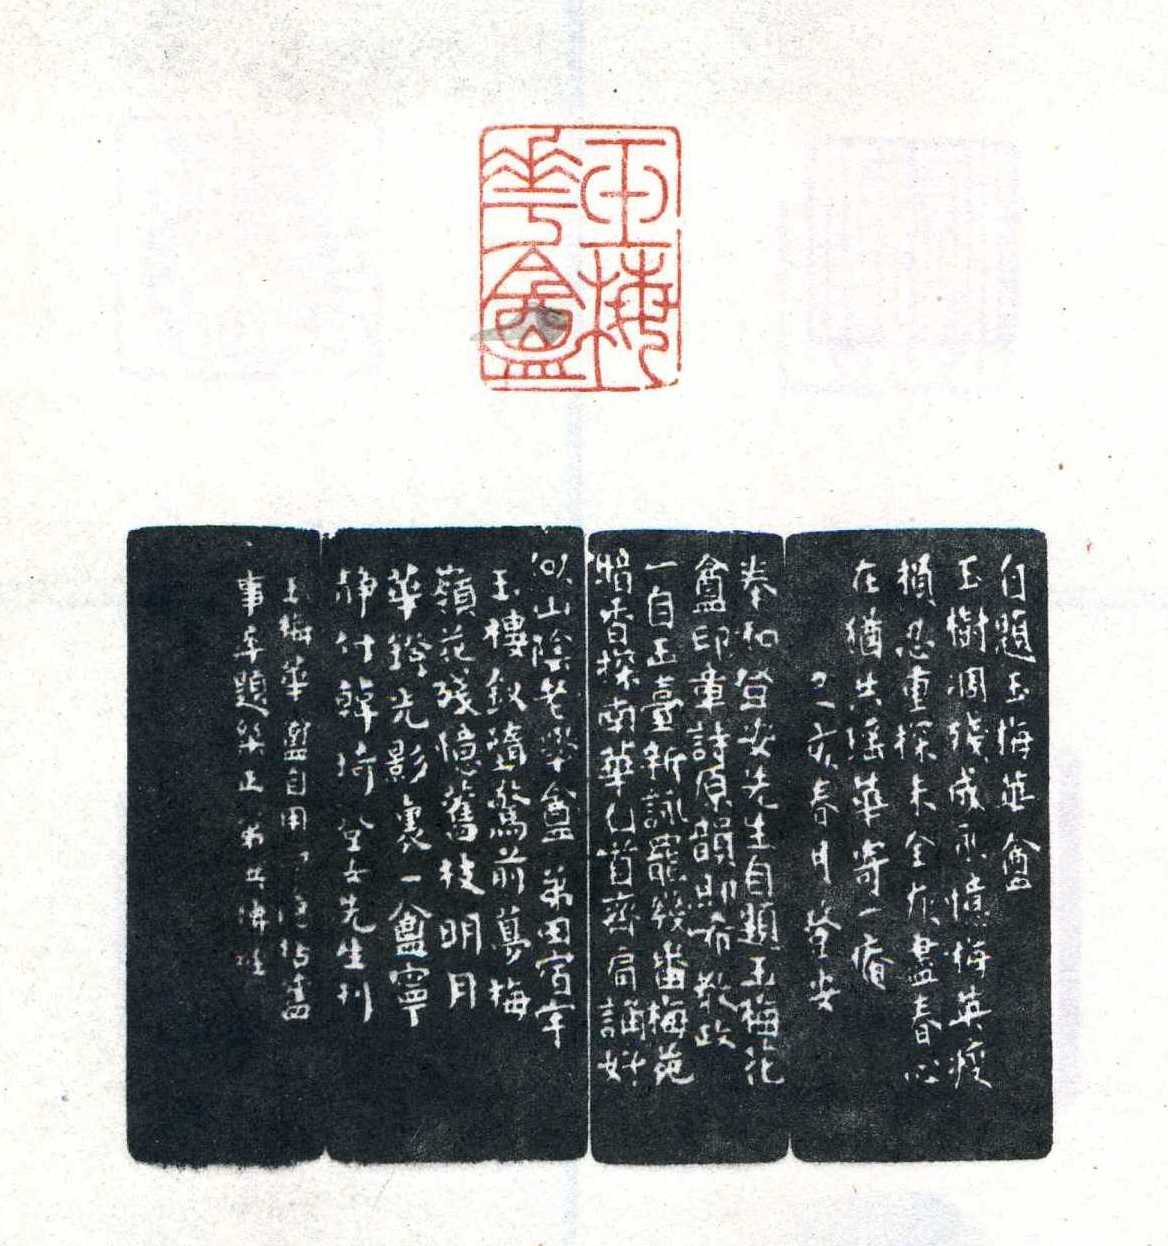 玉梅
華盦
自題玉梅華盦
玉樹凋殘成永憶梅英瘦
損忍重探未全灰盡春心
在猶共瑤華寄一龕
乙亥春月登安
奉和登安先生自題玉梅花
盦印章詩原韻即希教政
一自玉臺新詠罷幾番梅苑
暗香探南華幻首齊肩誦好
似山陰老學盦 弟田宿宇
玉樓釵墮驚前夢梅
嶺花殘憶舊枝明月
華鐙光影裏一盦寧
靜什 登安先生刊
玉梅華盦自用
事率題 正弟